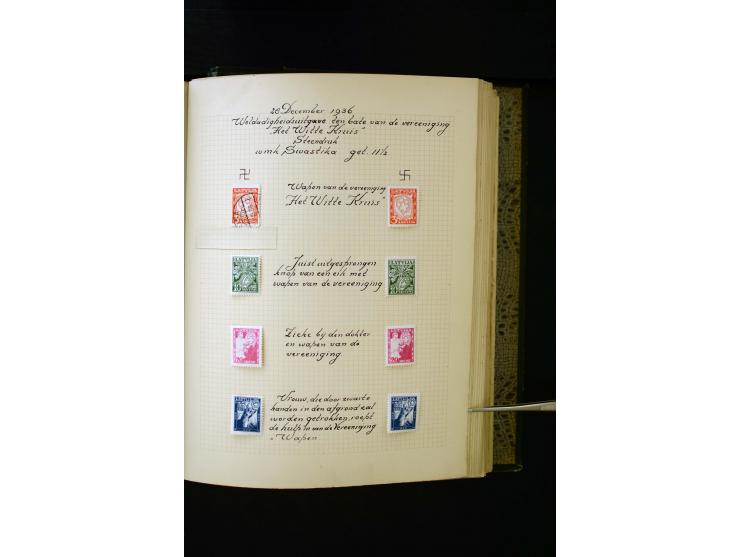 28 December 1936
Weldadigheidsuitgave ten bate van de vereeniging
"Het Witte Kruis"
Steendruk
wmk. Swastika get. 11½
Wapen van de vereeniging
"Het Witte Kruis"
LATVIJA
3
Juist uitgesprongen
knop van een eik met
wapen van de vereeniging
LATVIJA
10
LATVIJA
10
Zieke bij den dokter
en wapen van de
vereeniging.
20
20
Vrouw, die door zwarte
handen in den afgrond zal
worden getrokken, roept
de hulp in van de Vereeniging
Wapen
LATVIJA
LATVIJA